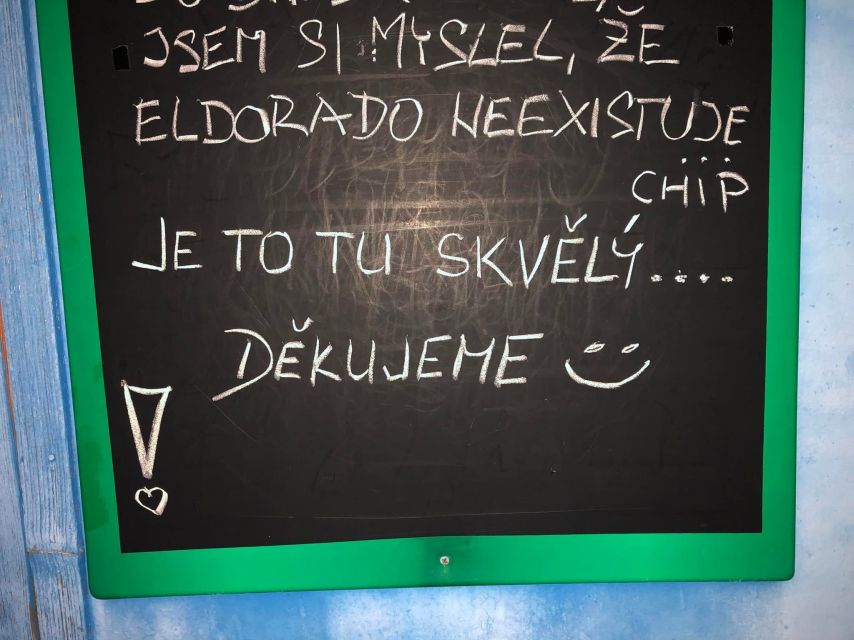 JSEM SI MYSLEL, ŽE
ELDORADO NEEXISTUJE
CHIP
JE TO TU SKVĚLÝ....
DĚKUJEME
!